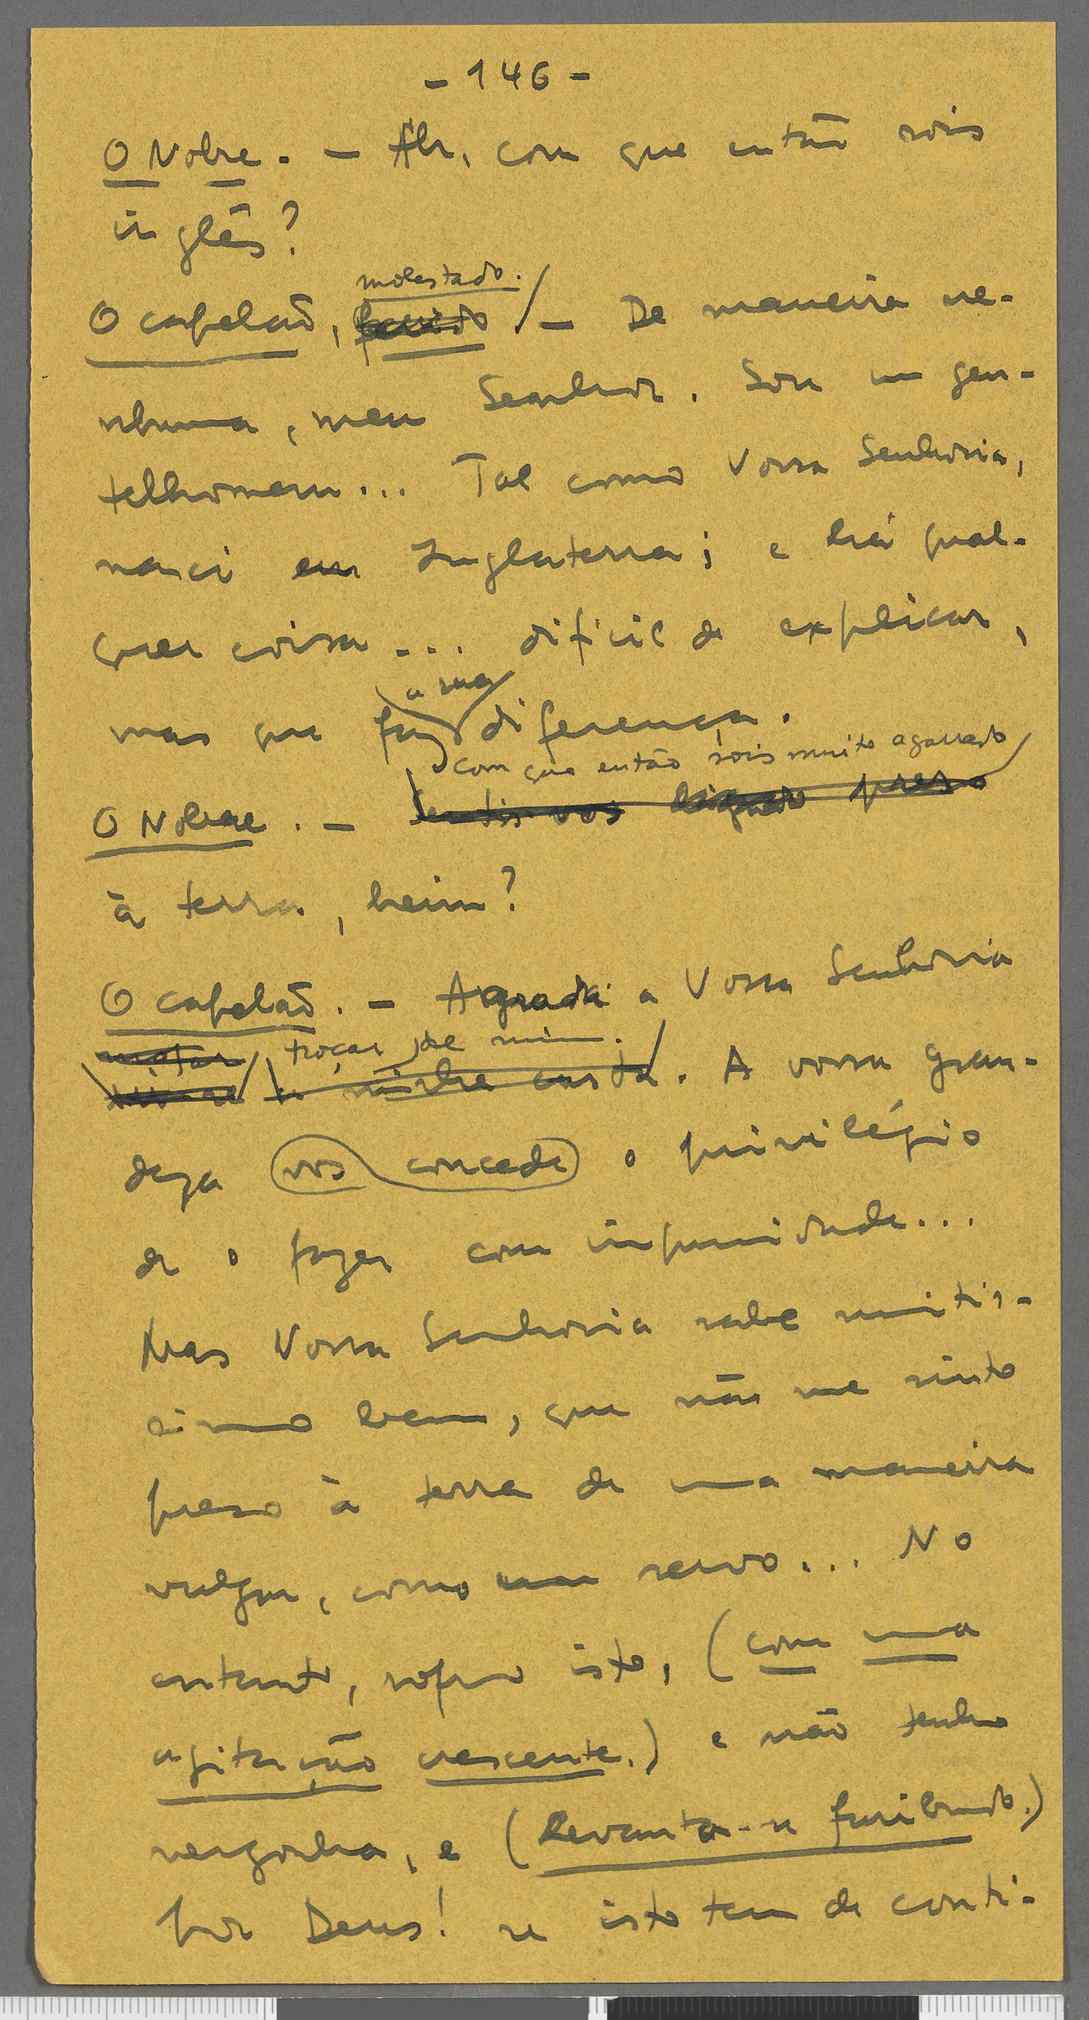 - 146 -
O Nobre. - Ah, com que então sois
inglês?
molestado.
O capelão, ferido / - De maneira ne-
nhuma, meu Senhor. Sou um gen-
telhomem... Tal como Vossa Senhoria,
nasci em Inglaterra; e há qual-
quer coisa... difícil de explicar,
a sua
mas que faz diferença.
com que então sois muito agarrado
O Nobre. - Sentis-vos ligado preso
à terra, heim?
O capelão. - Agrada a Vossa Senhoria
troçar de mim.
à minha custa. A vossa gran-
deza vos concede o privilégio
de o fazer com impunidade...
Mas Vossa Senhoria sabe muitís-
simo bem, que não me sinto
preso à terra de uma maneira
vulgar, como um servo... No
entanto, sofro isto, (com uma
agitação crescente.) e não tenho
vergonha, e (Levanta-se furibundo.)
por Deus! se isto tem de conti-